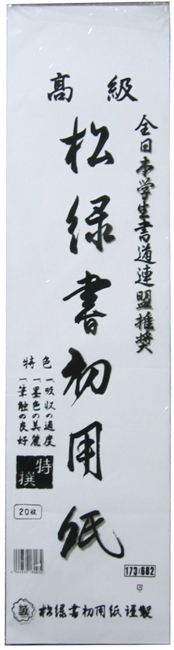 高級
全日本学生書道連盟推奨
松緑書初用紙
特色
一、吸収の適度
一、墨色の美麗
一、筆触の良好
特撰
20枚
173:682
松緑書初用紙謹製